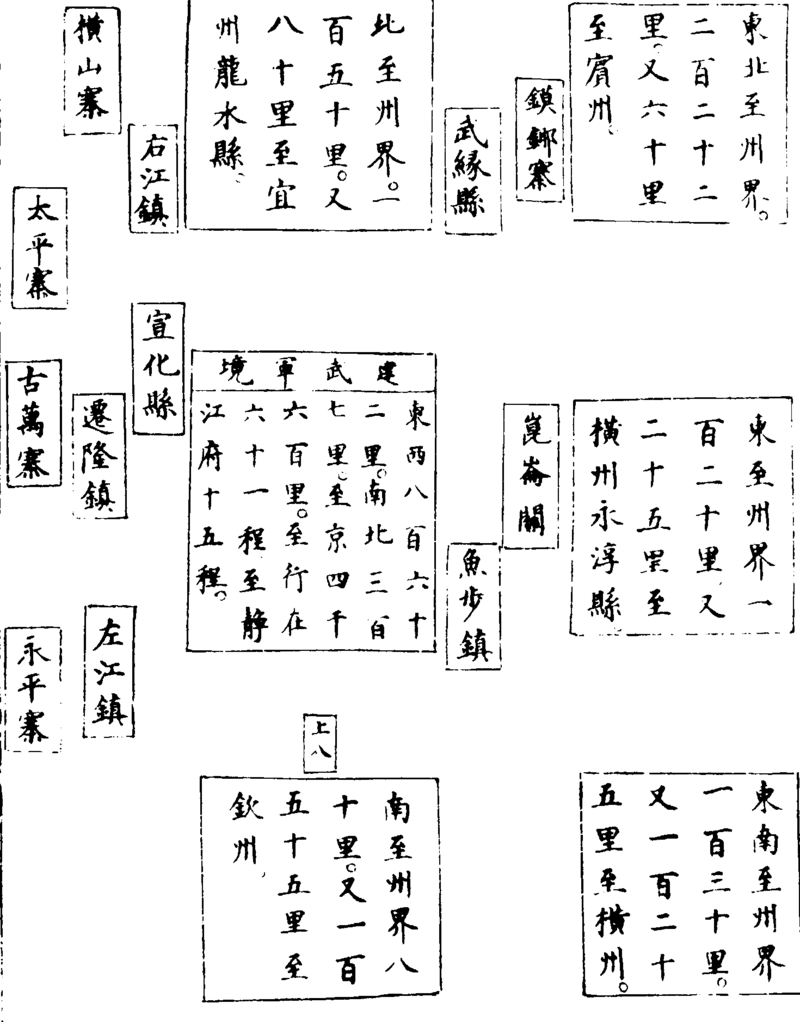 東北至州界。
二百二十二
里。又六十里
至賓州。
鎖鎁寨
武緣縣
北至州界。一
百五十里。又
八十里至宜
州龍水縣、
右江鎮
橫山寨
太平寨
東至州界一
百二十里、又
二十五里至
橫州永淳縣
崑崙關
魚步鎮
建武軍境
東西八百六十
二里。南北三百
七里。至京四千
六百里。至行在
六十一程至靜
江府十五程。
宣化縣
遷隆鎮
古萬寨
東南至州界
一百三十里。
又一百二十
五里至橫州。
上八
南至州界八
十里。又一百
五十五里至
欽州、
左江鎮
永平寨